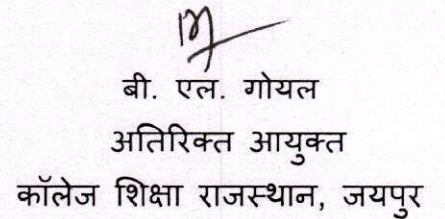 बी. एल. गोयल
अतिरिक्त आयुक्त
कॉलेज शिक्षा राजस्थान, जयपुर